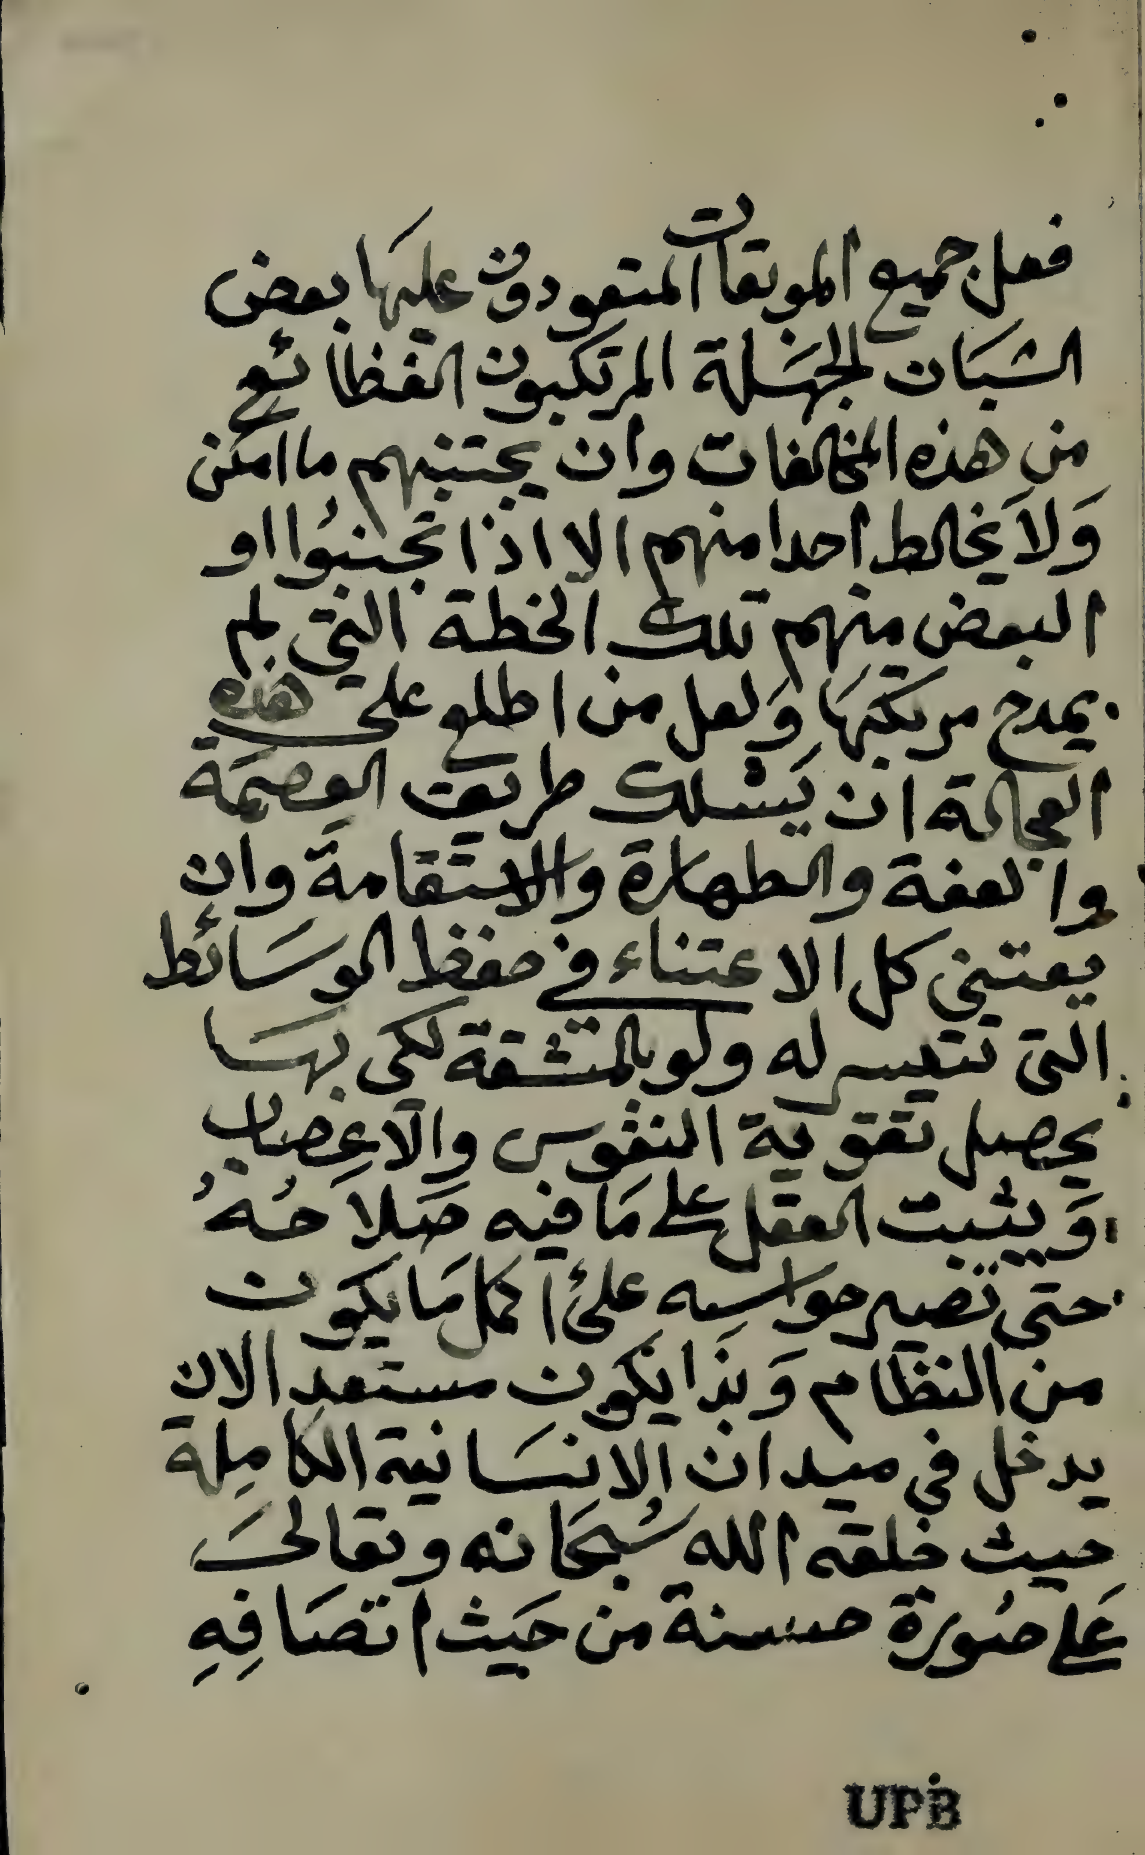 فعل جميع الموبقات المتعودون عليها بعض
الشبان الجهلة المرتكبون الفظائع
من هذه المخالفات وان يجتنبهم ما امكن
ولا يخالط احدا منهم الا اذا تجنبوا او
البعض منهم تلك الخطة التي لم
يمدح مرتكبها ولعل من اطلع على هذه
العجالة ان يسلك طريق العصمة
والعفة والطهارة والاستقامة وان
يعتني كل الاعتناء في حفظ الوسائط
التي تتيسر له ولو بالمشقة لكي بها
يحصل تقوية النفوس والاعصاب
ويثبت العقل على ما فيه صلاحه
حتى تصير حواسه على اكمل ما يكون
من النظام وبذا يكون مستعد الان
يدخل في ميدان الانسانية الكاملة
حيث خلقه الله سبحانه وتعالى
على صورة حسنة من حيث اتصافه
UPB